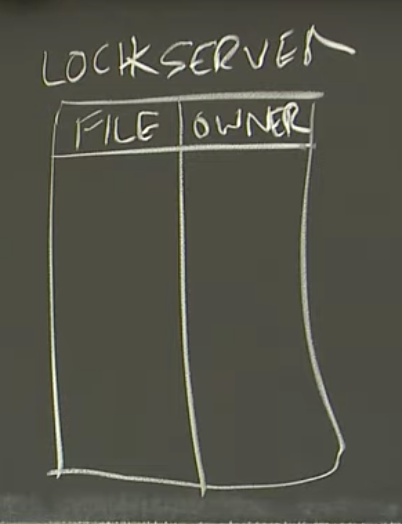 LOCKSERVER
FILE OWNER